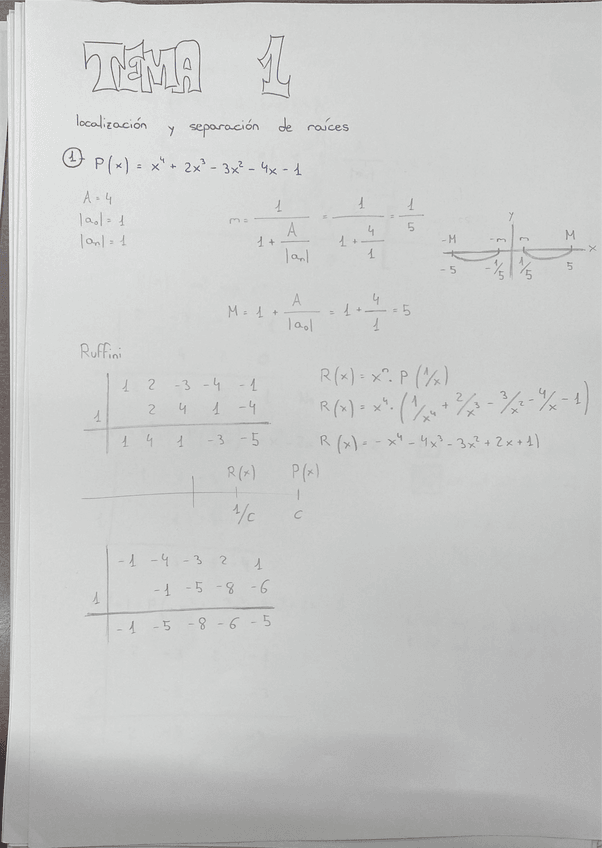 TEMA 1
localización y separación de raíces
1 P(x) = x⁴ + 2x³ - 3x² - 4x - 1
A = 4
|a₀| = 1
|aₙ| = 1
m = 1 / (1 + A/|aₙ|) = 1 / (1 + 4/1) = 1/5
y
-M -m m M x
-5 -1/5 1/5 5
M = 1 + A/|a₀| = 1 + 4/1 = 5
Ruffini
1 2 -3 -4 -1
1 2 4 1 -4
1 4 1 -3 -5
R(x) = xⁿ · P(1/x)
R(x) = x⁴ · (1/x⁴ + 2/x³ - 3/x² - 4/x - 1)
R(x) = - x⁴ - 4x³ - 3x² + 2x + 1)
R(x) P(x)
1/c c
-1 -4 -3 2 1
1 -1 -5 -8 -6
-1 -5 -8 -6 -5